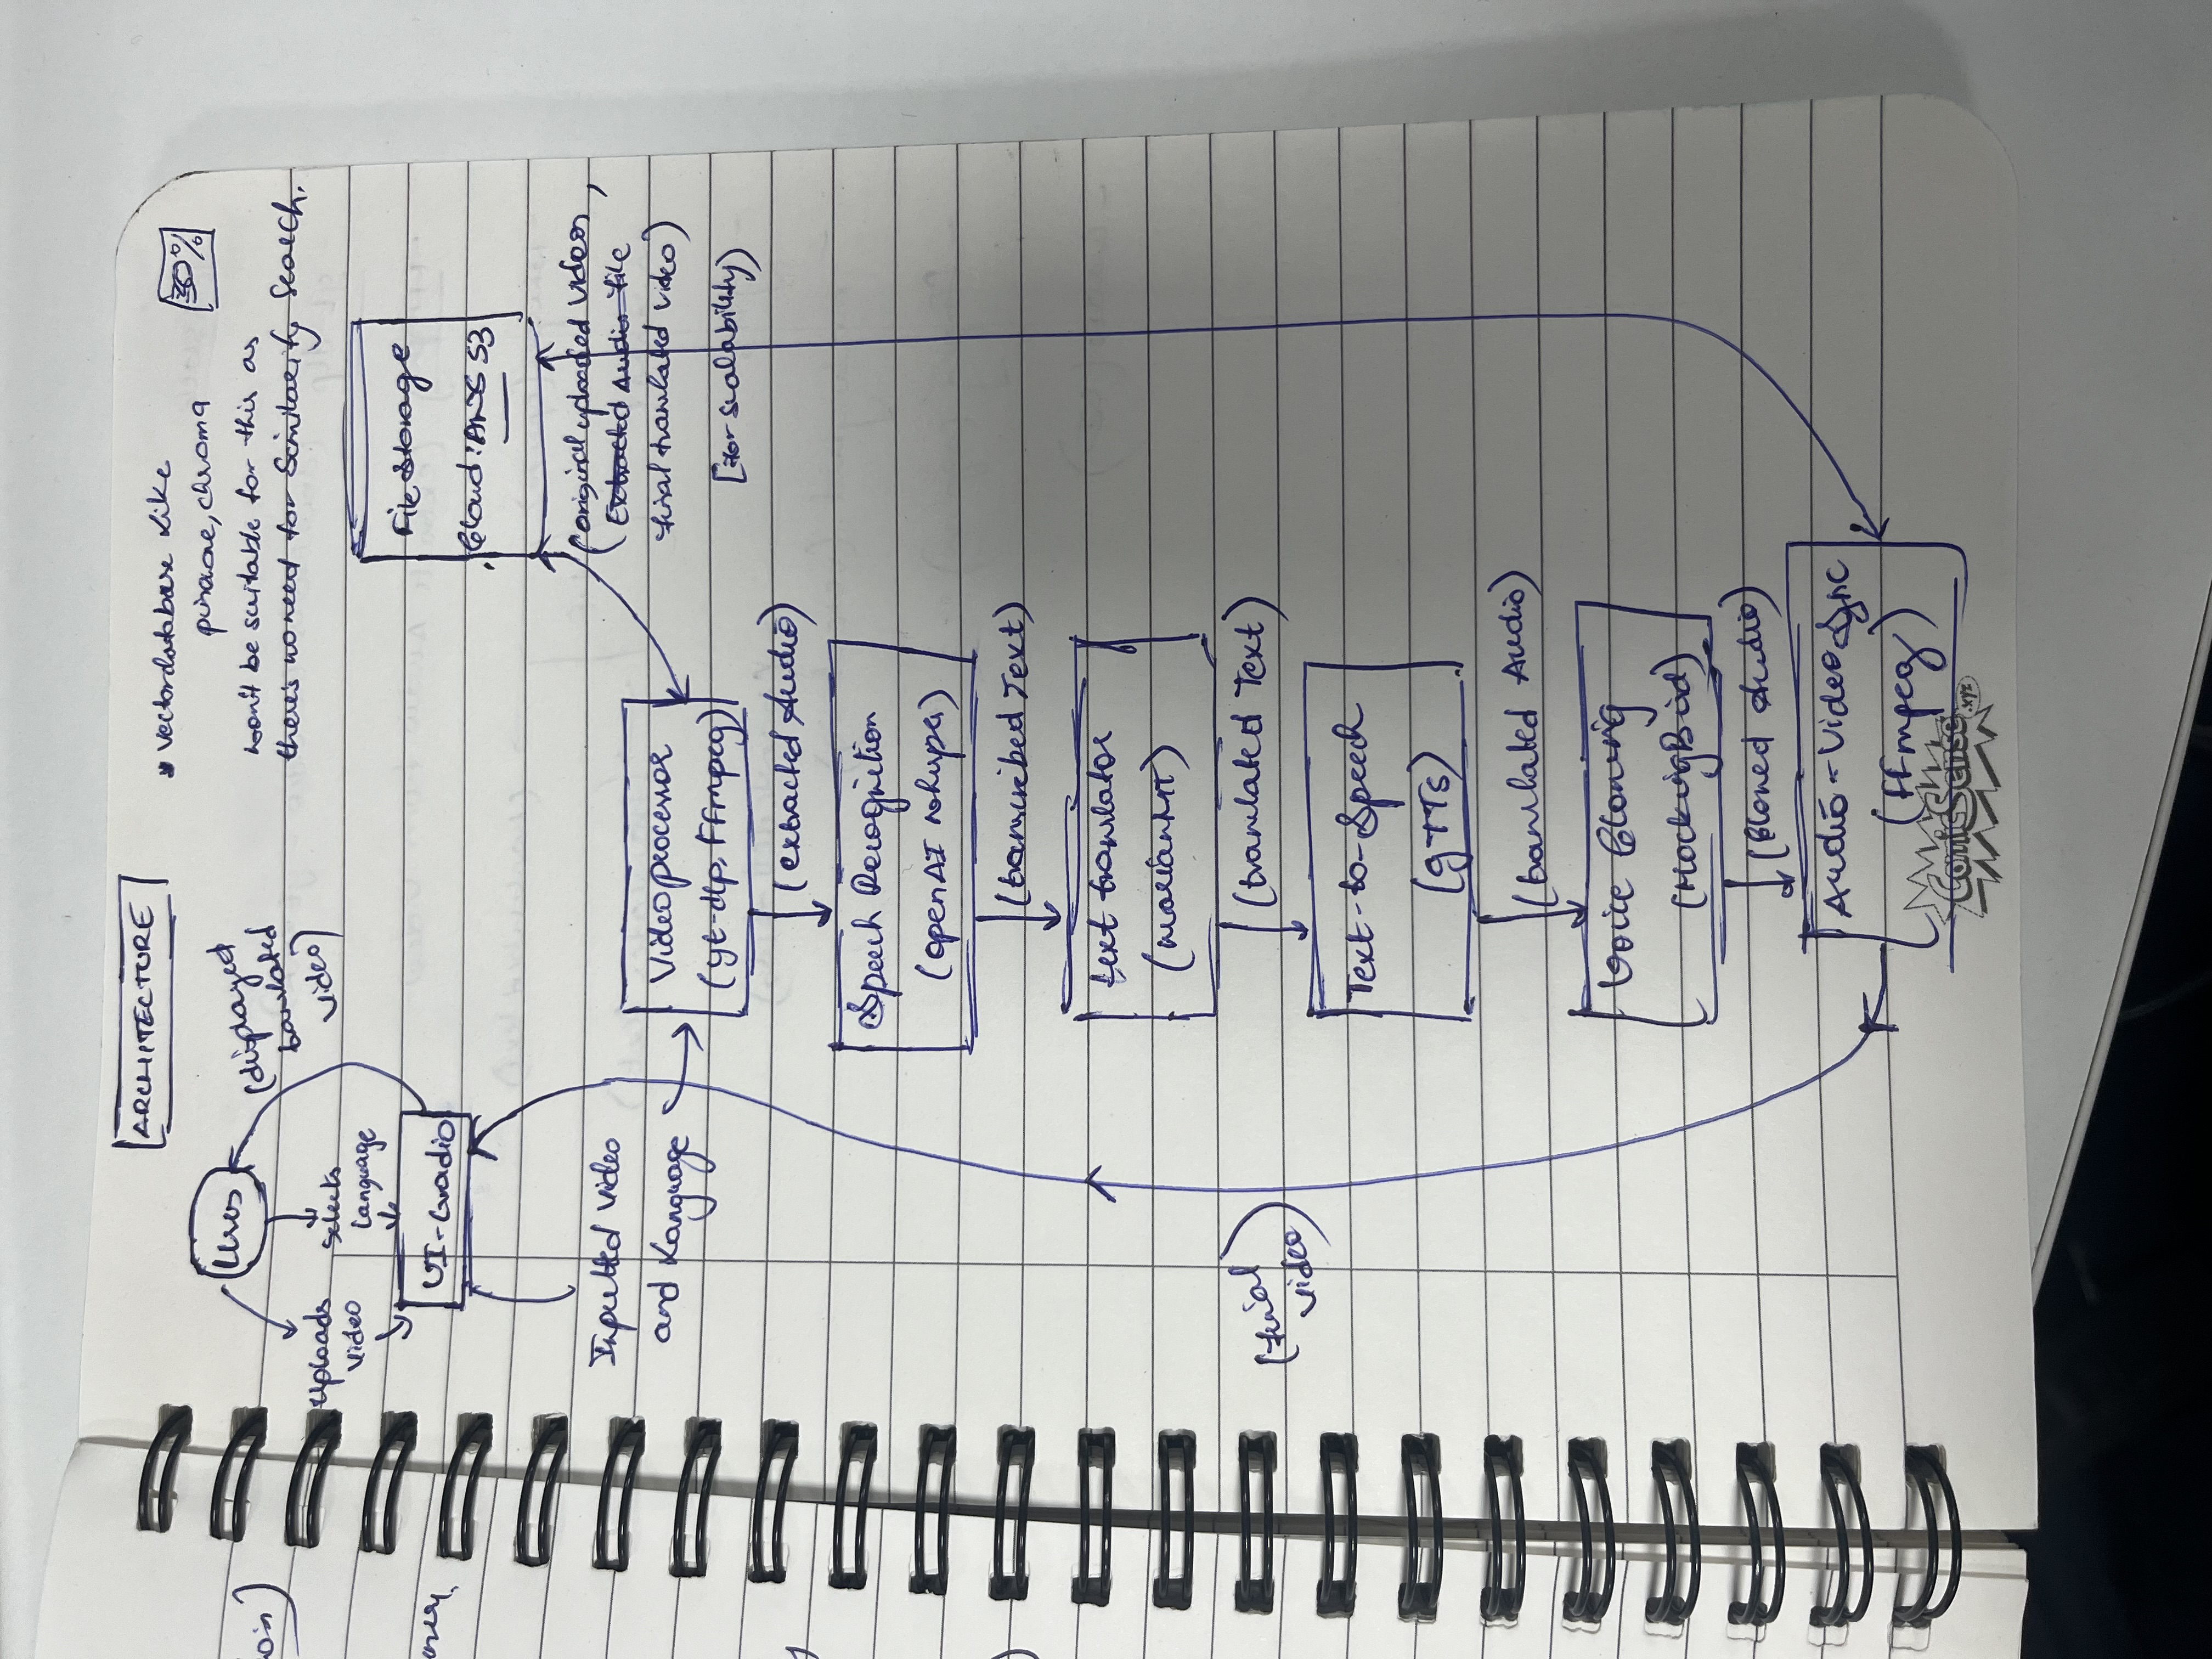 ARCHITECTURE
* vectordatabase like
pinecone, chroma
won't be suitable for this as
there's no need for similarity search.
30%
User
uploads
video
selects
language
(displayed
translated
video)
UI-Gradio
File storage
Cloud: AWS S3
(original uploaded videos,
Extracted Audio file
final translated video)
[for scalability)
Inputted video
and language
Video processor
(yt-dlp, FFmpeg)
(extracted Audio)
Speech Recognition
(openAI whisper)
(transcribed Text)
text translator
(marianMT)
(translated Text)
Text-to-Speech
(gTTS)
(translated Audio)
Voice Cloning
(MockingBird)
(cloned Audio)
Audio-Video Sync
(ffmpeg)
(final
video)
ComicSense
.xyz